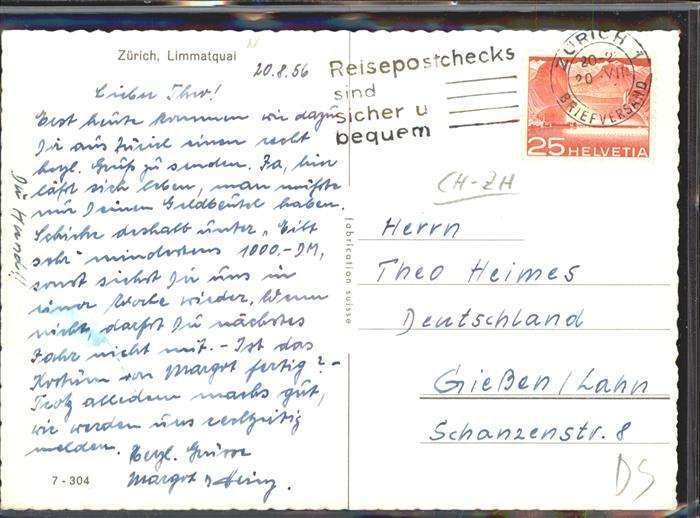 Zürich, Limmatquai
20.8.56
Lieber Theo!
Erst heute kommen wir dazu
Dir aus Zürich einen recht
hrzl. Gruß zu senden. Ja, hier
läßt sich leben, man müßte
nur Deinen Geldbeutel haben.
Schicke deshalb unter „Eilt
sehr" mindestens 1000.-DM,
sonst siehst Du uns in
einer Woche wieder. Wenn
nicht, darfst Du nächstes
Jahr nicht mit. - Ist das
Kostüm von Margot fertig? -
Trotz alledem machs gut,
wir werden uns rechtzeitig
melden.
Herzl. Grüsse
Margot Heinz.
7 - 304
fabrication suisse
Reisepostchecks
sind
sicher u
bequem
ZÜRICH 1
BRIEFVERSAND
25 HELVETIA
CH-ZH
Herrn
Theo Heimes
Deutschland
Gießen/Lahn
Schanzenstr. 8
DS